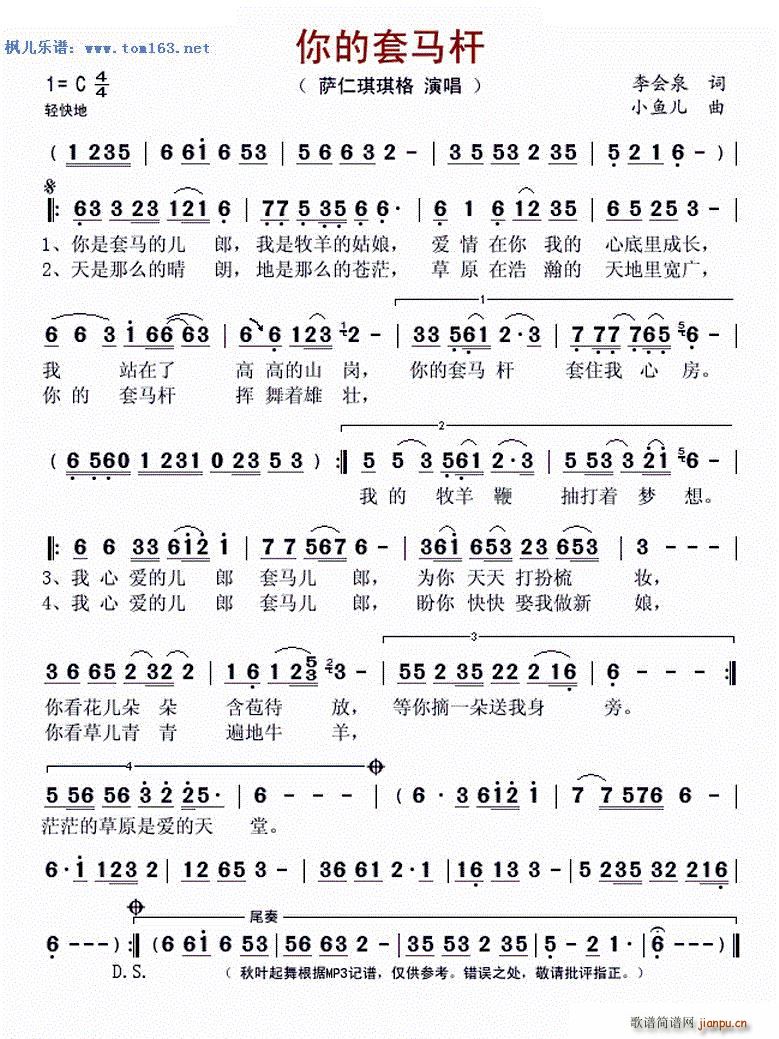 枫儿乐谱：www.tom163.net
你的套马杆
（ 萨仁琪琪格 演唱 ）
1= C 4/4
轻快地
李会泉 词
小鱼儿 曲
( 1 235 | 6 61 6 53 | 56 63 2 - | 3 5 53 2 35 | 5 21 6 - ) |
63 3 23 121 6 | 77 5 35 6 6· | 6 1 6 12 35 | 6 5 25 3 - |
1、你是套马的儿 郎，我是牧羊的姑娘， 爱 情 在你 我的 心底里成长，
2、天是那么的晴 朗，地是那么的苍茫， 草 原 在浩 瀚的 天地里宽广，
1
6 6 3 1 66 63 | 6 6 123 2 - | 33 561 2·3 | 7 77 765 6 - |
我 站在了 高 高的山 岗， 你的套马 杆 套住我 心 房。
你 的 套马杆 挥 舞着雄 壮，
2
( 6 560 1 231 0 23 5 3 ) :| 5 5 3 561 2·3 | 5 53 3 21 6 - |
我 的 牧羊 鞭 抽打着 梦 想。
|: 6 6 33 612 1 | 7 7 567 6 - | 361 653 23 653 | 3 - - - |
3、我 心 爱的儿 郎 套马儿 郎， 为你 天天 打扮梳 妆，
4、我 心 爱的儿 郎 套马儿 郎， 盼你 快快 娶我做新 娘，
3
3 6 65 2 32 2 | 1 6 1 253 3 - | 55 2 35 22 2 16 | 6 - - - :|
你看花儿朵 朵 含苞待 放， 等你摘一朵送我身 旁。
你看草儿青 青 遍地牛 羊，
4
5 56 56 3 2 25· | 6 - - - | ( 6 ·3 612 1 | 7 7 576 6 - |
茫茫的草原是爱的天 堂。
6·1 123 2 | 12 65 3 - | 36 61 2· 1 | 16 13 3 - | 5 235 32 216 |
尾奏
6 - - - ) :| ( 6 61 6 53 | 56 63 2 - | 3 53 2 35 | 5 - 2 · 1 | 6 - - - ) |
D.S.
（ 秋叶起舞根据MP3记谱，仅供参考。错误之处，敬请批评指正。）
歌谱简谱网
jianpu.cn